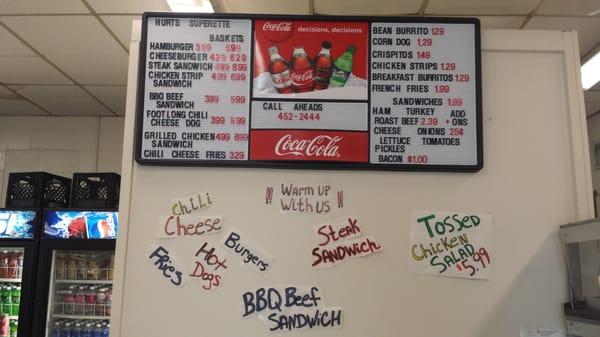 HURTS SUPERETTE
BASKETS
HAMBURGER 399 599
CHEESEBURGER 429 629
STEAK SANDWICH 499 699
CHICKEN STRIP 499 699
SANDWICH
BBQ BEEF 399 599
SANDWICH
FOOT LONG CHILI
CHEESE DOG 399 599
GRILLED CHICKEN 499 699
SANDWICH
CHILI CHEESE FRIES 329
Coca-Cola decisions, decisions..
CALL AHEADS
452-2444
Coca-Cola
BEAN BURRITO 1.29
CORN DOG 1.29
CRISPITOS 1.49
CHICKEN STRIPS 1.29
BREAKFAST BURRITOS 1.29
FRENCH FRIES 1.99
SANDWICHES 1.99
HAM TURKEY ADD
ROAST BEEF 2.39 + ONS
CHEESE ONIONS 25¢
LETTUCE TOMATOES
PICKLES
BACON $1.00
!! WARM UP !!
WITH US
CHILI
CHEESE
FRIES
HOT
DOGS
BURGERS
STEAK
SANDWICH
BBQ BEEF
SANDWICH
TOSSED
CHICKEN
SALAD
$5.99
pepsi